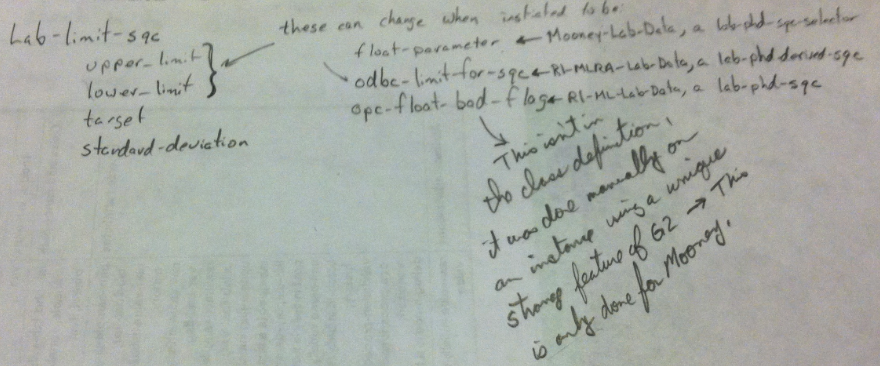 Lab-limit-sqc
upper-limit
lower-limit
target
standard-deviation
these can change when instatied to be:
float-parameter ← Mooney-Lab-Data, a lab-phd-sqc-selector
odbc-limit-for-sqc ← RI-MLRA-Lab-Data, a lab-phd-derived-sqc
opc-float-bad-flag ← RI-ML-Lab-Data, a lab-phd-sqc
This isn't in
the class definition,
it was done manually on
an instance using a unique
strong feature of G2 → This
is only done for Mooney.